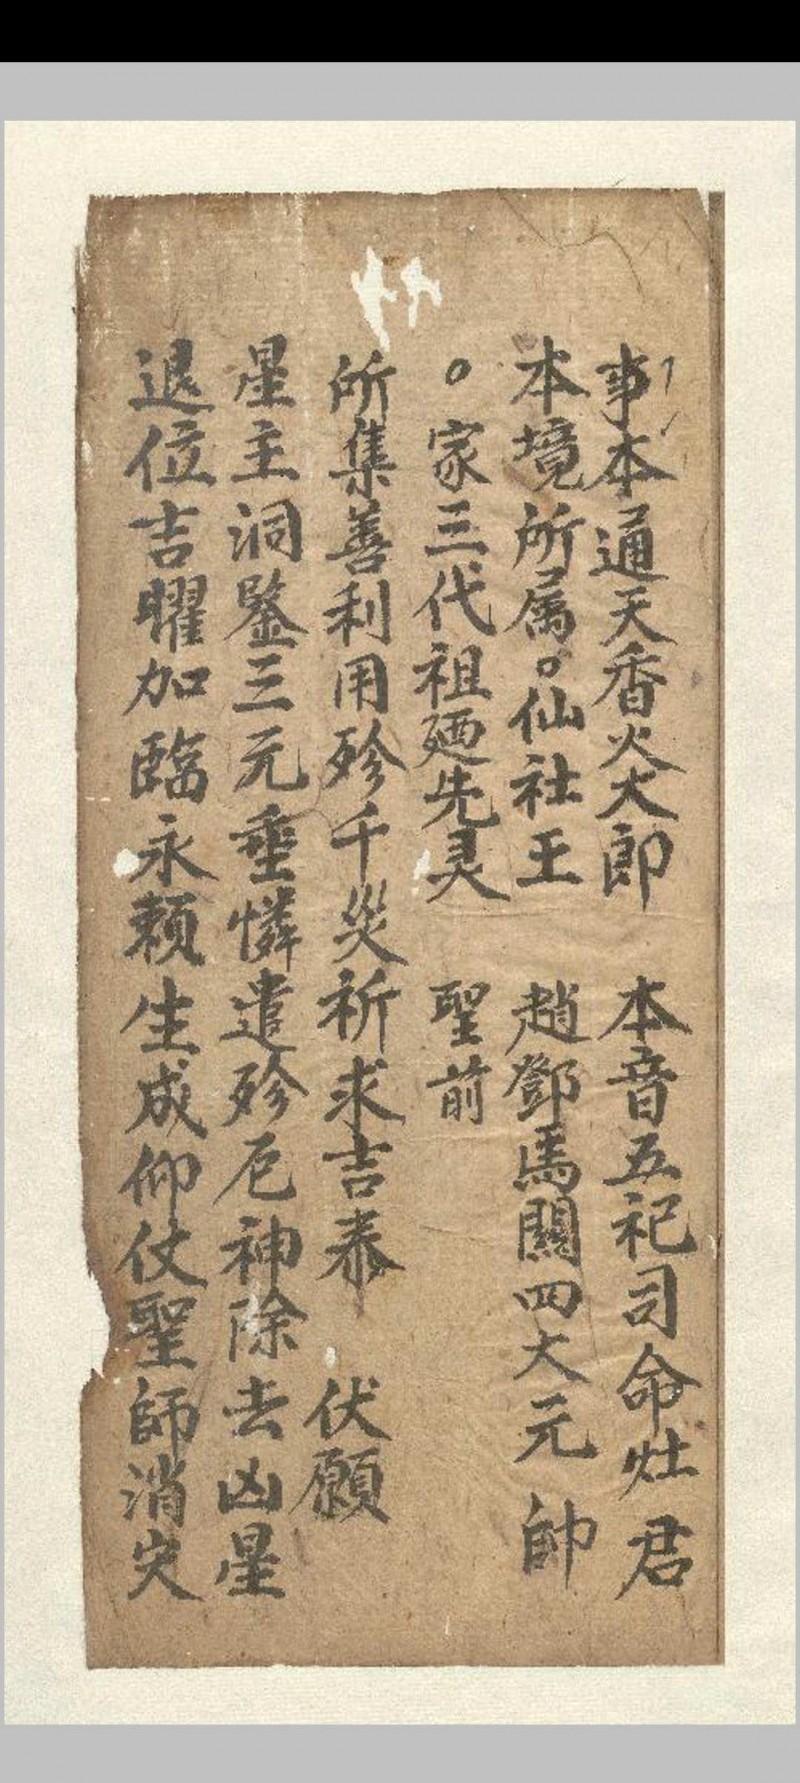 事本通天香火大郎 本音五祀司命灶君
本境所属。仙社王 趙鄧馬關四大元帥
。家三代祖廼先灵 聖前
所集善利用殄千災祈求吉泰 伏願
星主洞鑒三元垂憐遣殄厄神除去凶星
退位吉曜加臨永賴生成仰仗聖師消灾